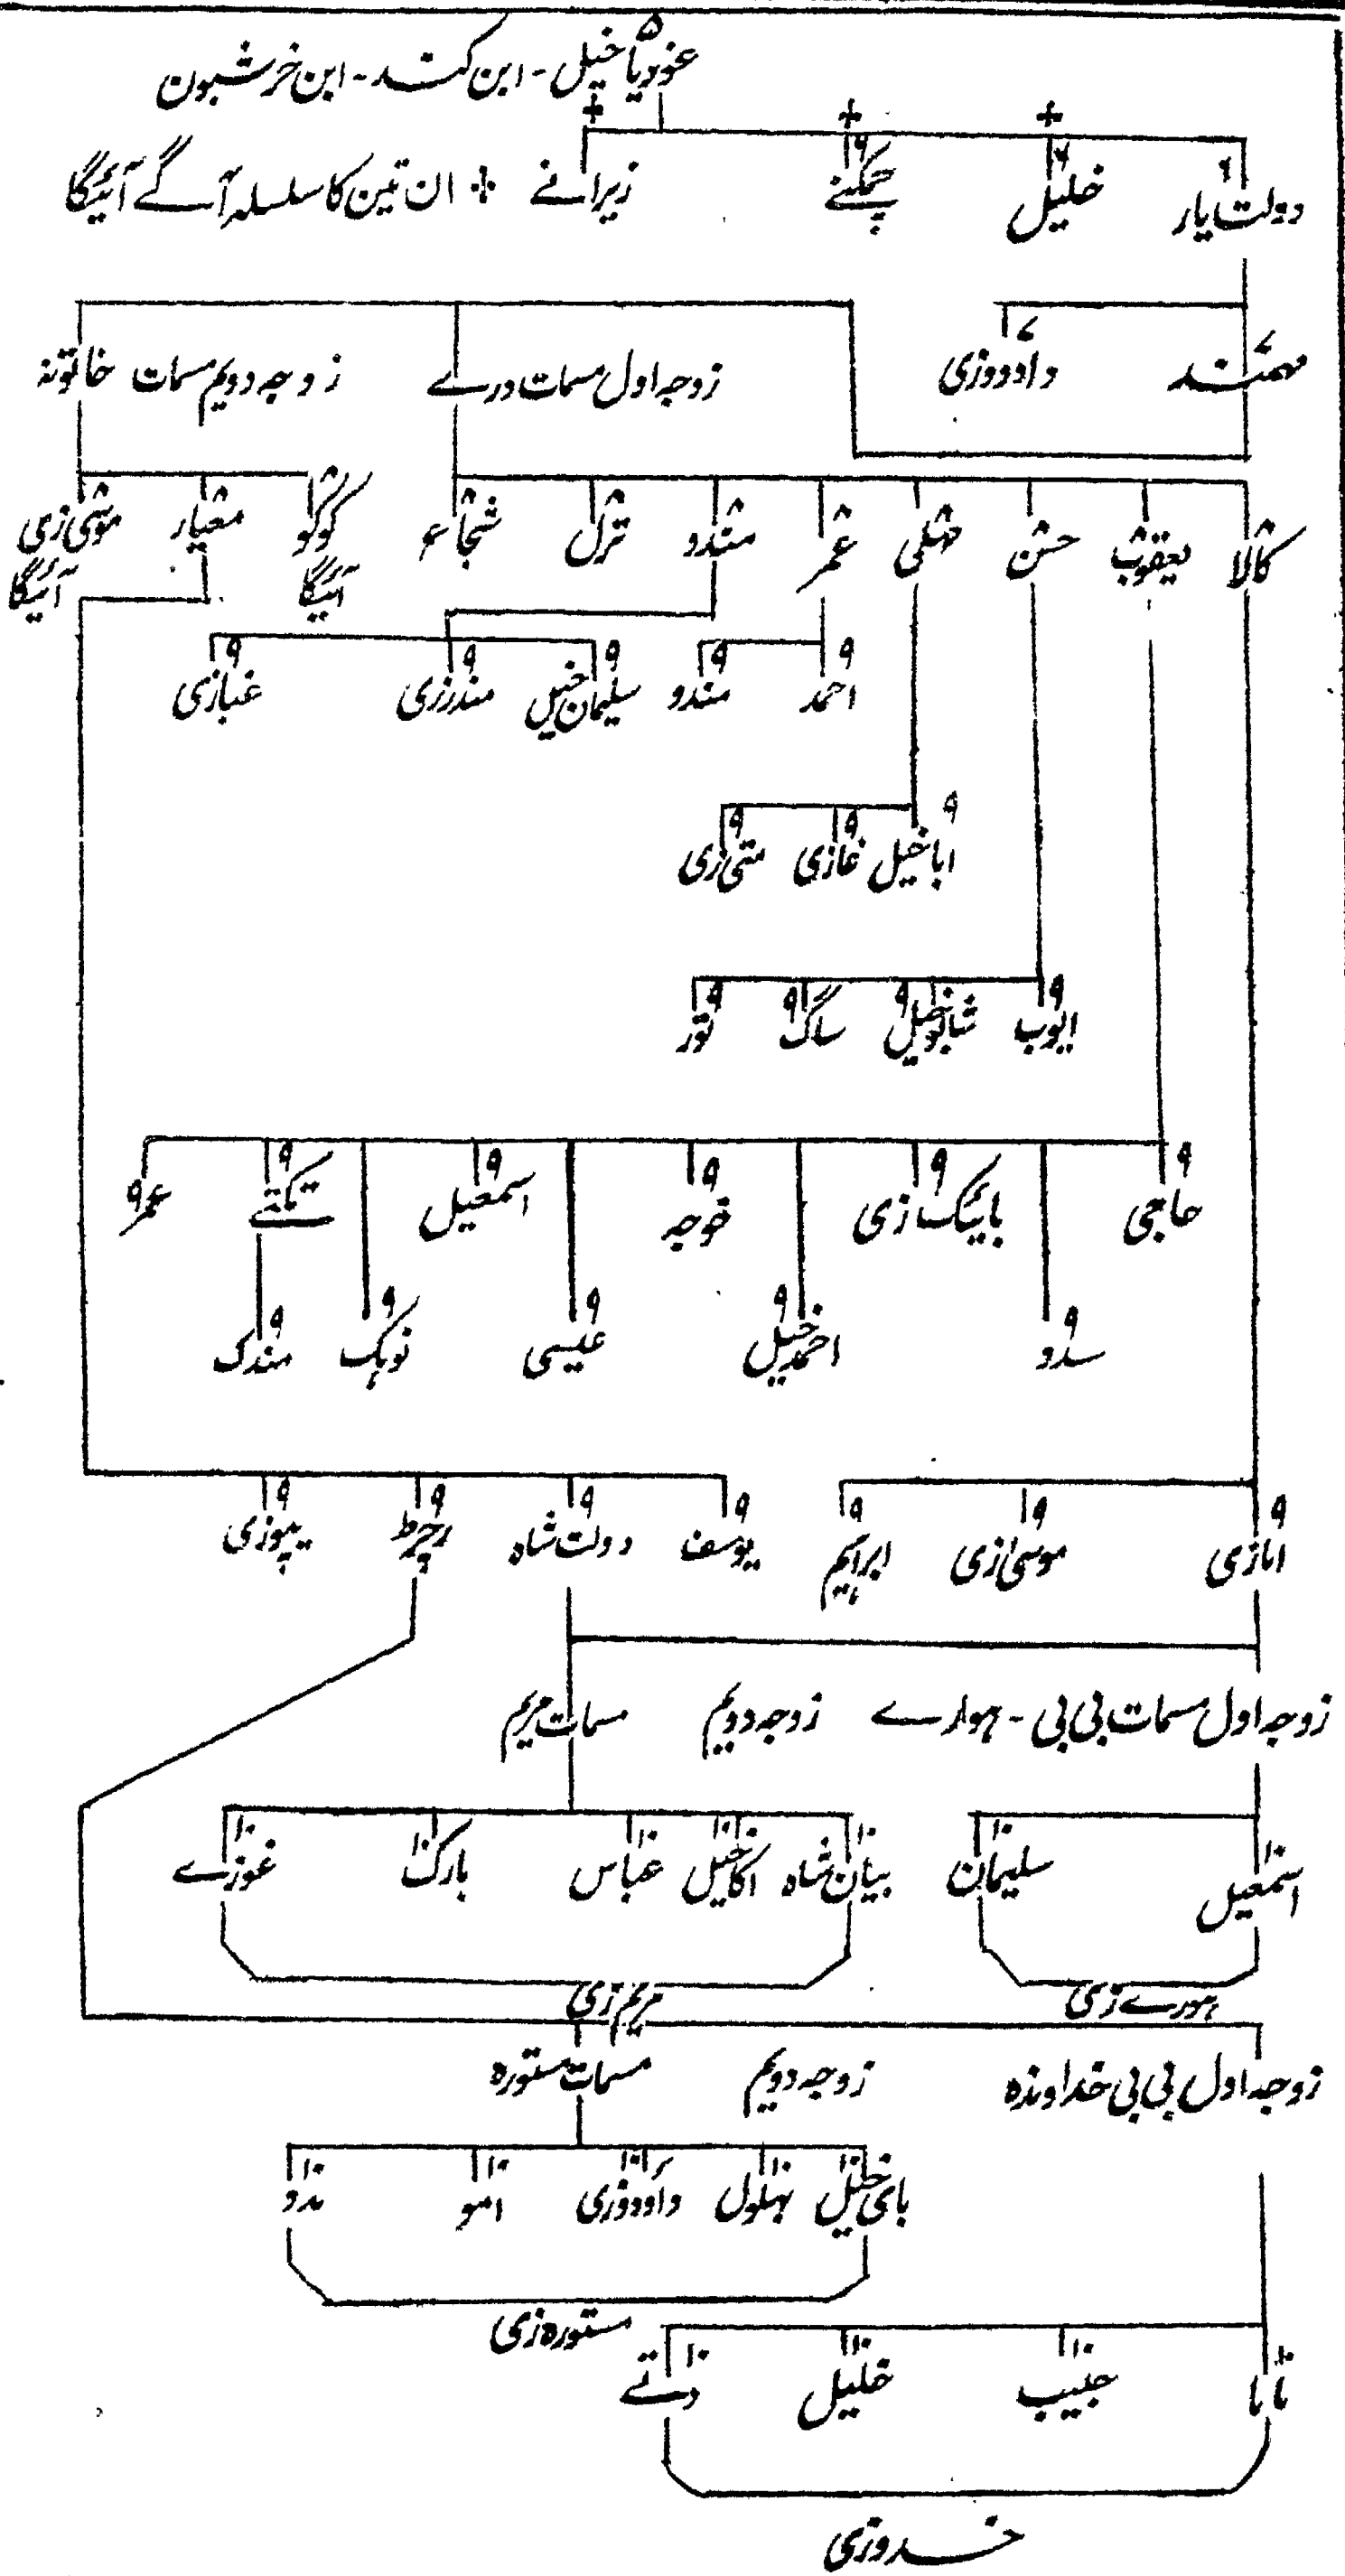 غوریا خیل - ابن کند - ابن خرشبون ۵
دولت یار ۶ خلیل ۶ چمکنے ۶ زیرانے + ان تین کا سلسلہ آگے آئیگا
مہمند ۷ داودزی ۷ زوجہ اول مسمات درے زوجہ دویم مسمات خاتونہ
کالا ۸ یعقوب ۸ حسن ۸ عمر ۸ مندو ۸ ترل ۸ شجاع ۸ کوکو ۸ معیار ۸ موسیٰ زی ۸
آئیگا آئیگا
احمد ۹ مندو ۹ سلیمان خیل ۹ مندرزی ۹ غبازی ۹
ابا خیل ۹ غازی ۹ متی زی ۹
ایوب ۹ شابو خیل ۹ ساگ ۹ تور ۹
حاجی ۹ بائیک زی ۹ خوجہ ۹ اسمعیل ۹ تکتے ۹ عمر ۹
سدو ۹ احمد خیل ۹ عیسی ۹ نوہک ۹ مندک ۹
اتازی ۹ موسیٰ زی ۹ ابراہیم ۹ یوسف ۹ دولت شاہ ۹ رچرط ۹ یپوزی ۹
زوجہ اول مسمات بی بی - ہوارے زوجہ دویم مسمات مریم
اسمعیل ۱۰ سلیمان ۱۰ بیان شاہ ۱۰ اکا خیل ۱۰ عباس ۱۰ بارک ۱۰ غوزے ۱۰
ہورے زی مریم زی
زوجہ اول بی بی خداوندہ زوجہ دویم مسمات ستورہ
بای خیل ۱۰ بہلول ۱۰ داودزی ۱۰ امو ۱۰ مدو ۱۰
ستورہ زی
بابا ۱۰ حبیب ۱۰ خلیل ۱۰ دتے ۱۰
خدوزی